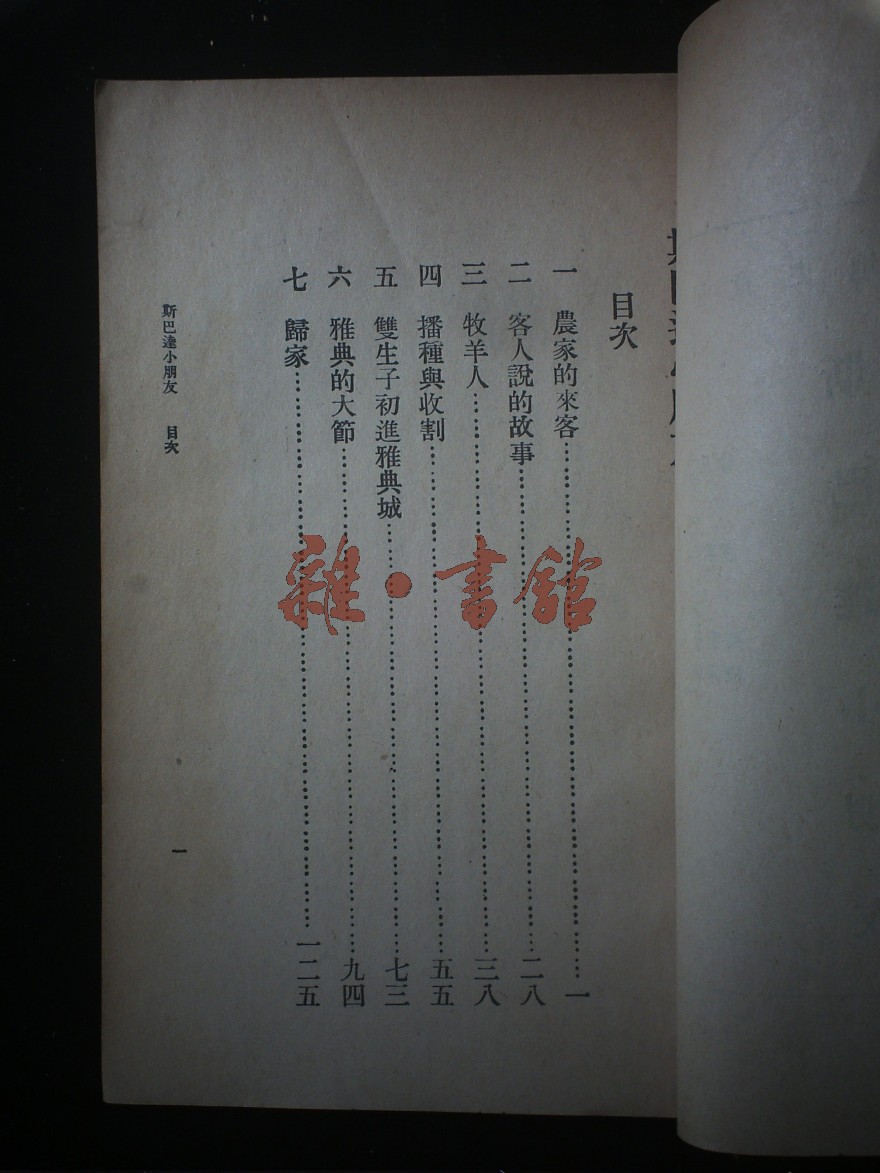 目次
一 農家的來客…………一
二 客人說的故事…………二八
三 牧羊人…………三八
四 播種與收割…………五五
五 雙生子初進雅典城…………七三
六 雅典的大節…………九四
七 歸家…………一二五
斯巴達小朋友 目次
一
雜·書館